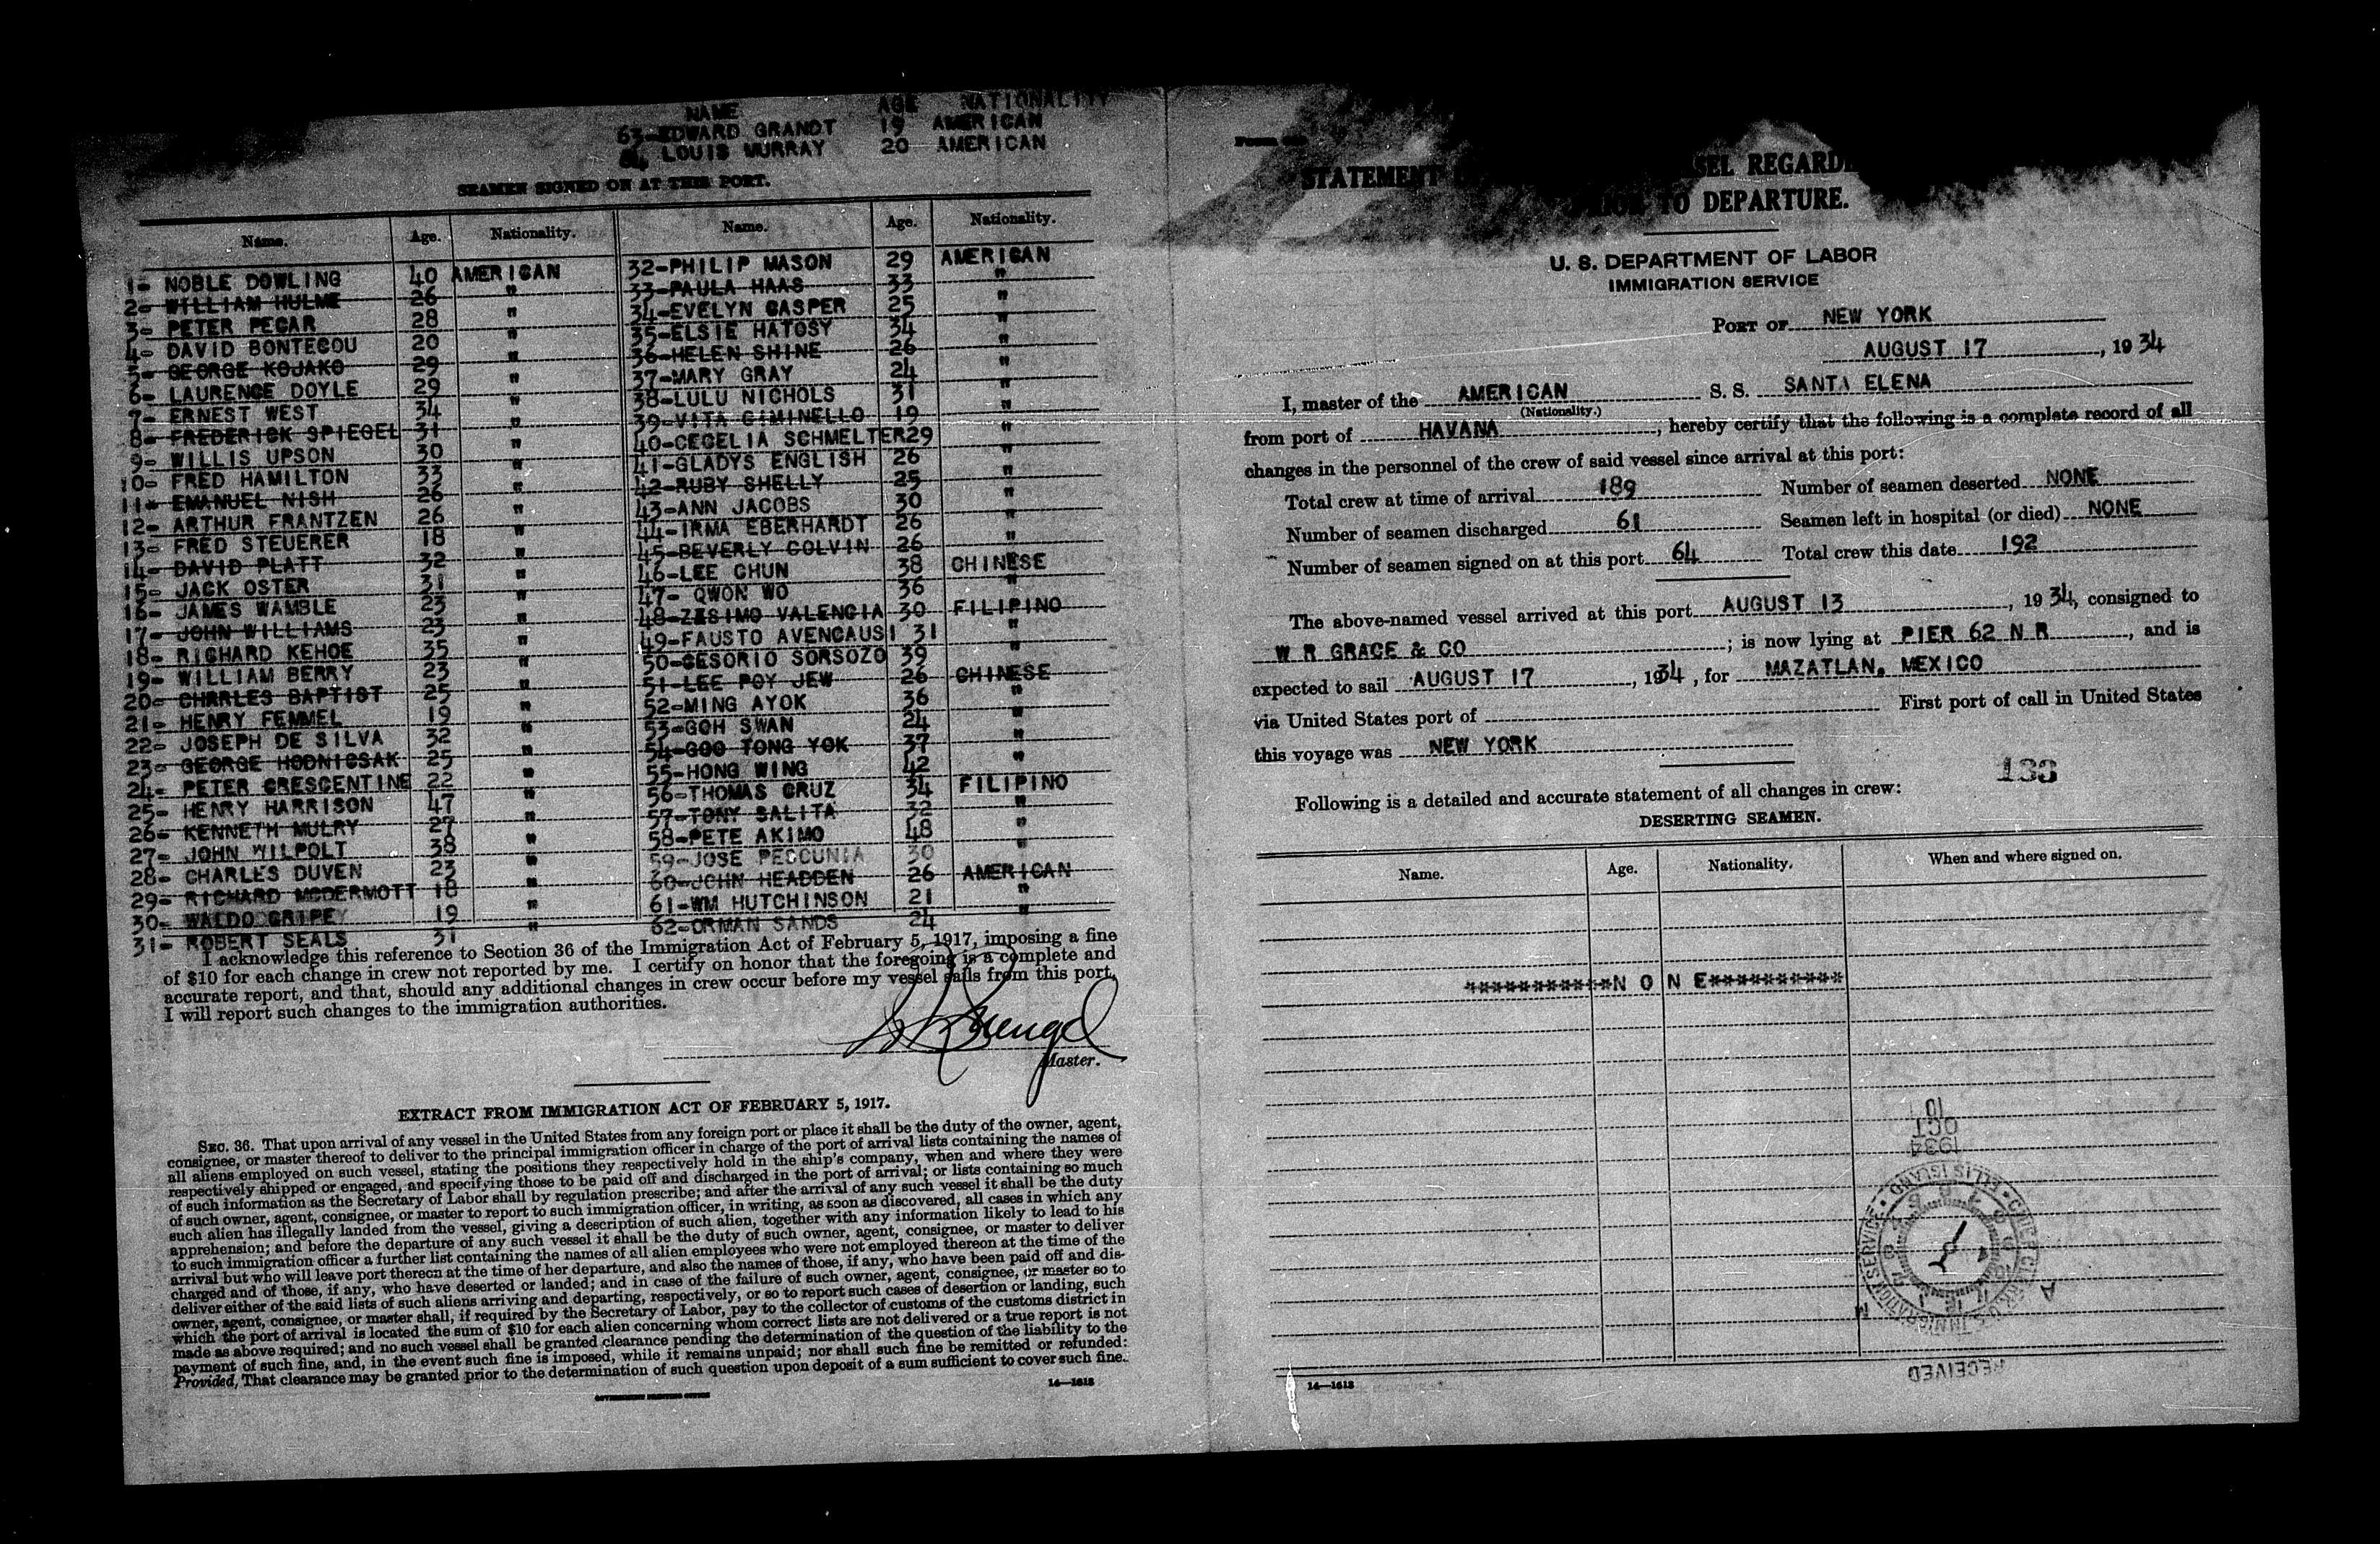 NAME AGE NATIONALITY
63-EDWARD GRANDT 19 AMERICAN
64 LOUIS MURRAY 20 AMERICAN
SEAMEN SIGNED ON AT THIS PORT.
Name. Age. Nationality. Name. Age. Nationality.
1- NOBLE DOWLING 40 AMERICAN 32-PHILIP MASON 29 AMERICAN
2- WILLIAM HULME 26 " 33-PAULA HAAS 33 "
3- PETER PEGAR 28 " 34-EVELYN CASPER 25 "
4- DAVID BONTECOU 20 " 35-ELSIE HATOSY 34 "
5- GEORGE KOJAKO 29 " 36-HELEN SHINE 26 "
6- LAURENCE DOYLE 29 " 37-MARY GRAY 24 "
7- ERNEST WEST 34 " 38-LULU NICHOLS 31 "
8- FREDERICK SPIEGEL 31 " 39-VITA CIMINELLO 19 "
9- WILLIS UPSON 30 " 40-CECELIA SCHMELTER29 "
10- FRED HAMILTON 33 " 41-GLADYS ENGLISH 26 "
11- EMANUEL NISH 26 " 42-RUBY SHELLY 25 "
12- ARTHUR FRANTZEN 26 " 43-ANN JACOBS 30 "
13- FRED STEUERER 18 " 44-IRMA EBERHARDT 26 "
14- DAVID PLATT 32 " 45-BEVERLY COLVIN 26 "
15- JACK OSTER 31 " 46-LEE CHUN 38 CHINESE
16- JAMES WAMBLE 23 " 47- QWON WO 36 "
17- JOHN WILLIAMS 23 " 48-ZESIMO VALENCIA 30 FILIPINO
18- RICHARD KEHOE 35 " 49-FAUSTO AVENCAUSI 31 "
19- WILLIAM BERRY 23 " 50-CESORIO SORSOZO 39 "
20- CHARLES BAPTIST 25 " 51-LEE POY JEW 26 CHINESE
21- HENRY FEMMEL 19 " 52-MING AYOK 36 "
22- JOSEPH DE SILVA 32 " 53-GOH SWAN 24 "
23- GEORGE HODNICSAK 25 " 54-GOO TONG YOK 37 "
24- PETER CRESCENTINE 22 " 55-HONG WING 42 "
25- HENRY HARRISON 47 " 56-THOMAS CRUZ 34 FILIPINO
26- KENNETH MULRY 27 " 57-TONY SALITA 32 "
27- JOHN WILPOLT 38 " 58-PETE AKIMO 48 "
28- CHARLES DUVEN 23 " 59-JOSE PECCUNIA 30 "
29- RICHARD MCDERMOTT 18 " 60-JOHN HEADDEN 26 AMERICAN
30- WALDO GRIPEY 19 " 61-WM HUTCHINSON 21 "
31- ROBERT SEALS 31 " 62-ORMAN SANDS 24 "
I acknowledge this reference to Section 36 of the Immigration Act of February 5, 1917, imposing a fine
of $10 for each change in crew not reported by me. I certify on honor that the foregoing is a complete and
accurate report, and that, should any additional changes in crew occur before my vessel sails from this port,
I will report such changes to the immigration authorities.
Master.
EXTRACT FROM IMMIGRATION ACT OF FEBRUARY 5, 1917.
SEC. 36. That upon arrival of any vessel in the United States from any foreign port or place it shall be the duty of the owner, agent,
consignee, or master thereof to deliver to the principal immigration officer in charge of the port of arrival lists containing the names of
all aliens employed on such vessel, stating the positions they respectively hold in the ship's company, when and where they were
respectively shipped or engaged, and specifying those to be paid off and discharged in the port of arrival; or lists containing so much
of such information as the Secretary of Labor shall by regulation prescribe; and after the arrival of any such vessel it shall be the duty
of such owner, agent, consignee, or master to report to such immigration officer, in writing, as soon as discovered, all cases in which any
such alien has illegally landed from the vessel, giving a description of such alien, together with any information likely to lead to his
apprehension; and before the departure of any such vessel it shall be the duty of such owner, agent, consignee, or master to deliver
to such immigration officer a further list containing the names of all alien employees who were not employed thereon at the time of the
arrival but who will leave port thereon at the time of her departure, and also the names of those, if any, who have been paid off and dis-
charged and of those, if any, who have deserted or landed; and in case of the failure of such owner, agent, consignee, or master so to
deliver either of the said lists of such aliens arriving and departing, respectively, or so to report such cases of desertion or landing, such
owner, agent, consignee, or master shall, if required by the Secretary of Labor, pay to the collector of customs of the customs district in
which the port of arrival is located the sum of $10 for each alien concerning whom correct lists are not delivered or a true report is not
made as above required; and no such vessel shall be granted clearance pending the determination of the question of the liability to the
payment of such fine, and, in the event such fine is imposed, while it remains unpaid; nor shall such fine be remitted or refunded:
Provided, That clearance may be granted prior to the determination of such question upon deposit of a sum sufficient to cover such fine.
GOVERNMENT PRINTING OFFICE 14—1618
Form
STATEMENT SEL REGARD
TO DEPARTURE.
U. S. DEPARTMENT OF LABOR
IMMIGRATION SERVICE
PORT OF NEW YORK
AUGUST 17, 1934
I, master of the AMERICAN S. S. SANTA ELENA
(Nationality.)
from port of HAVANA, hereby certify that the following is a complete record of all
changes in the personnel of the crew of said vessel since arrival at this port:
Total crew at time of arrival 189 Number of seamen deserted NONE
Number of seamen discharged 61 Seamen left in hospital (or died) NONE
Number of seamen signed on at this port 64 Total crew this date 192
The above-named vessel arrived at this port AUGUST 13, 1934, consigned to
W R GRACE & CO; is now lying at PIER 62 N R, and is
expected to sail AUGUST 17, 1934, for MAZATLAN, MEXICO
via United States port of First port of call in United States
this voyage was NEW YORK
133
Following is a detailed and accurate statement of all changes in crew:
DESERTING SEAMEN.
Name. Age. Nationality. When and where signed on.
***********N O N E**********
10
OCT
1934
U.S. IMMIGRATION SERVICE • ELLIS ISLAND •
A M
RECEIVED
14—1618